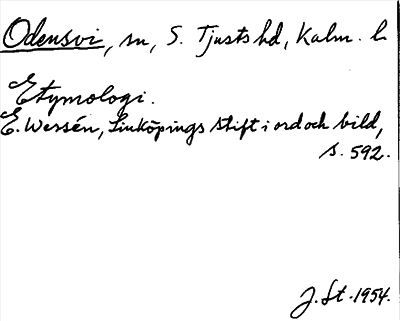 Odensvi, sn, S. Tjusts hd, Kalm. l.
Etymologi.
E. Wessén, Linköpings stift i ord och bild,
s. 592.
J. St. 1954.